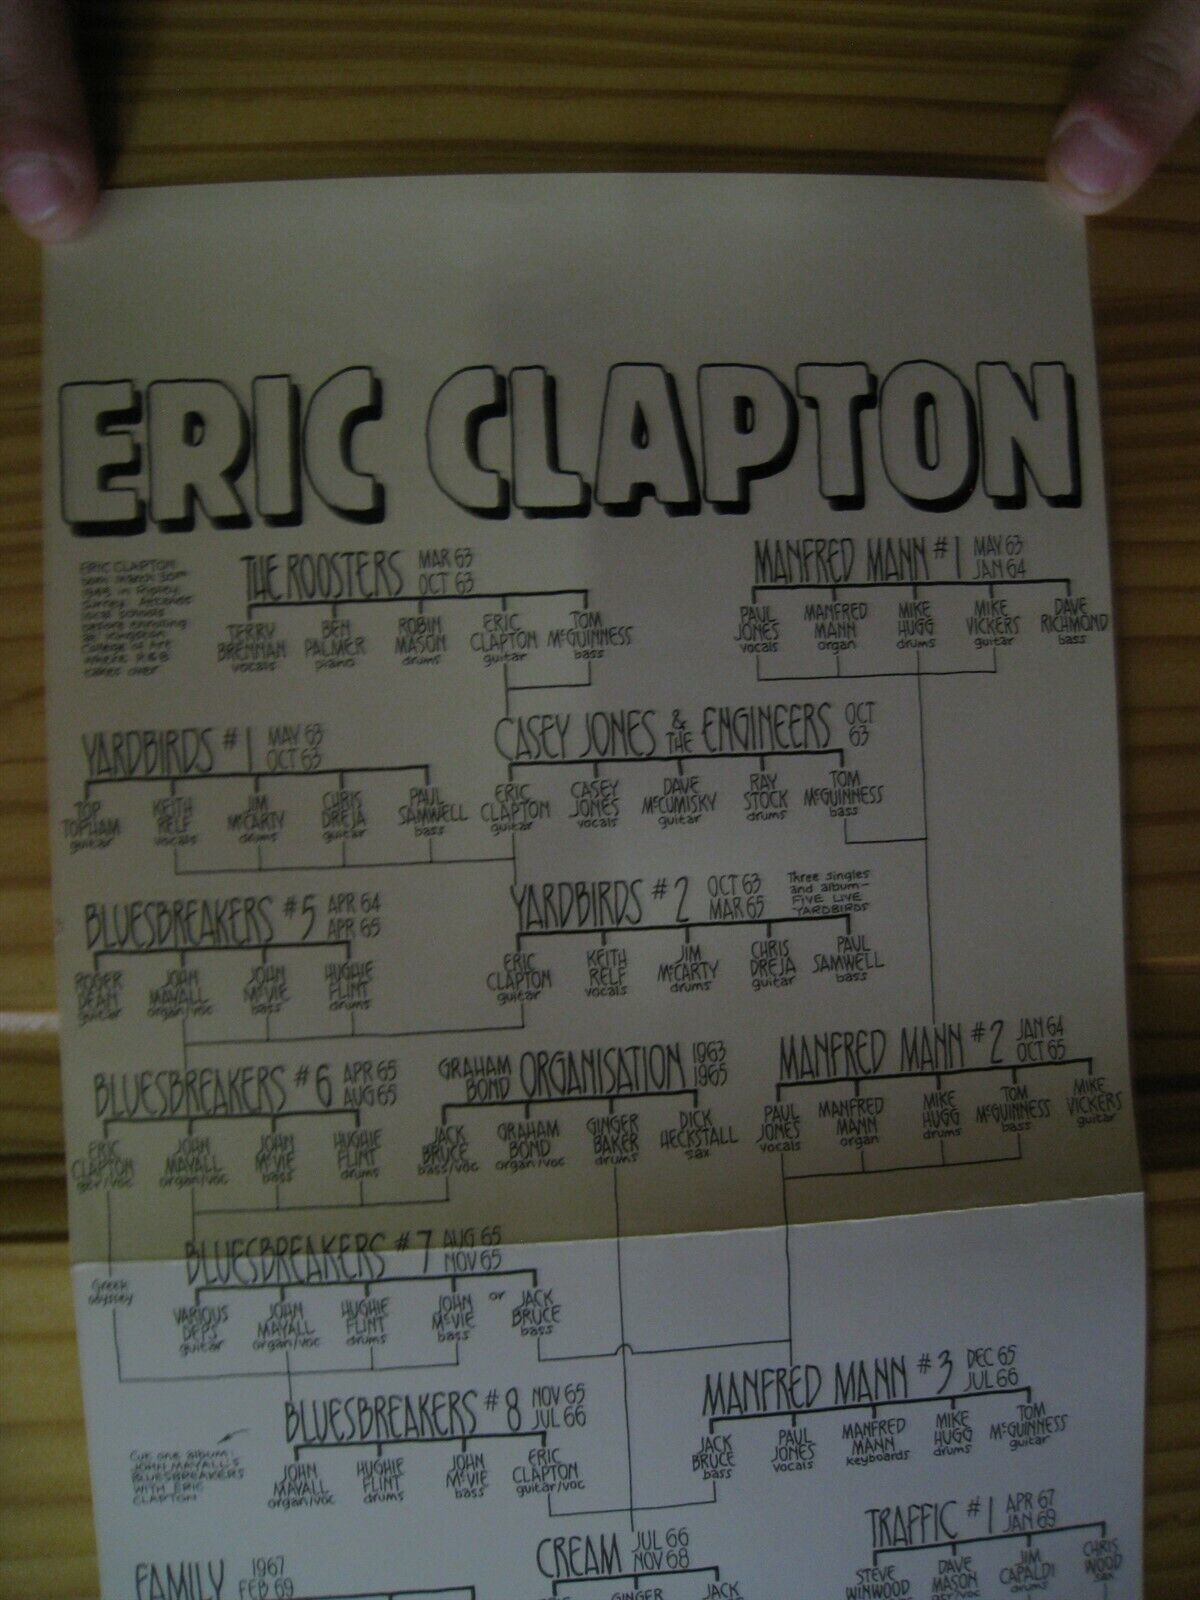 ERIC CLAPTON
ERIC CLAPTON
born March 30th
1945 in Ripley,
Surrey. Attends
local schools
before enrolling
at Kingston
College of Art
where R&B
takes over
THE ROOSTERS MAR 63
OCT 63
TERRY BRENNAN vocals
BEN PALMER piano
ROBIN MASON drums
ERIC CLAPTON guitar
TOM McGUINNESS bass
MANFRED MANN #1 MAY 63
JAN 64
PAUL JONES vocals
MANFRED MANN organ
MIKE HUGG drums
MIKE VICKERS guitar
DAVE RICHMOND bass
YARDBIRDS #1 MAY 63
OCT 63
TOP TOPHAM guitar
KEITH RELF vocals
JIM McCARTY drums
CHRIS DREJA guitar
PAUL SAMWELL bass
CASEY JONES & THE ENGINEERS OCT
63
ERIC CLAPTON guitar
CASEY JONES vocals
DAVE McCUMISKY guitar
RAY STOCK drums
TOM McGUINNESS bass
BLUESBREAKERS #5 APR 64
APR 65
ROGER DEAN guitar
JOHN MAYALL organ/voc
JOHN McVIE bass
HUGHIE FLINT drums
YARDBIRDS #2 OCT 63
MAR 65
Three singles
and album—
FIVE LIVE
YARDBIRDS
ERIC CLAPTON guitar
KEITH RELF vocals
JIM McCARTY drums
CHRIS DREJA guitar
PAUL SAMWELL bass
BLUESBREAKERS #6 APR 65
AUG 65
ERIC CLAPTON gtr/voc
JOHN MAYALL organ/voc
JOHN McVIE bass
HUGHIE FLINT drums
GRAHAM BOND ORGANISATION 1963
1965
JACK BRUCE bass/voc
GRAHAM BOND organ/voc
GINGER BAKER drums
DICK HECKSTALL sax
MANFRED MANN #2 JAN 64
OCT 65
PAUL JONES vocals
MANFRED MANN organ
MIKE HUGG drums
TOM McGUINNESS bass
MIKE VICKERS guitar
Greek
odyssey
BLUESBREAKERS #7 AUG 65
NOV 65
VARIOUS DEPS guitar
JOHN MAYALL organ/voc
HUGHIE FLINT drums
JOHN McVIE bass
or
JACK BRUCE bass
BLUESBREAKERS #8 NOV 65
JUL 66
Cut one album:
JOHN MAYALL'S
BLUESBREAKERS
WITH ERIC
CLAPTON
JOHN MAYALL organ/voc
HUGHIE FLINT drums
JOHN McVIE bass
ERIC CLAPTON guitar/voc
MANFRED MANN #3 DEC 65
JUL 66
JACK BRUCE bass
PAUL JONES vocals
MANFRED MANN keyboards
MIKE HUGG drums
TOM McGUINNESS guitar
FAMILY 1967
FEB 69
CREAM JUL 66
NOV 68
GINGER
JACK
TRAFFIC #1 APR 67
JAN 69
STEVE WINWOOD
DAVE MASON
JIM CAPALDI drums
CHRIS WOOD sax